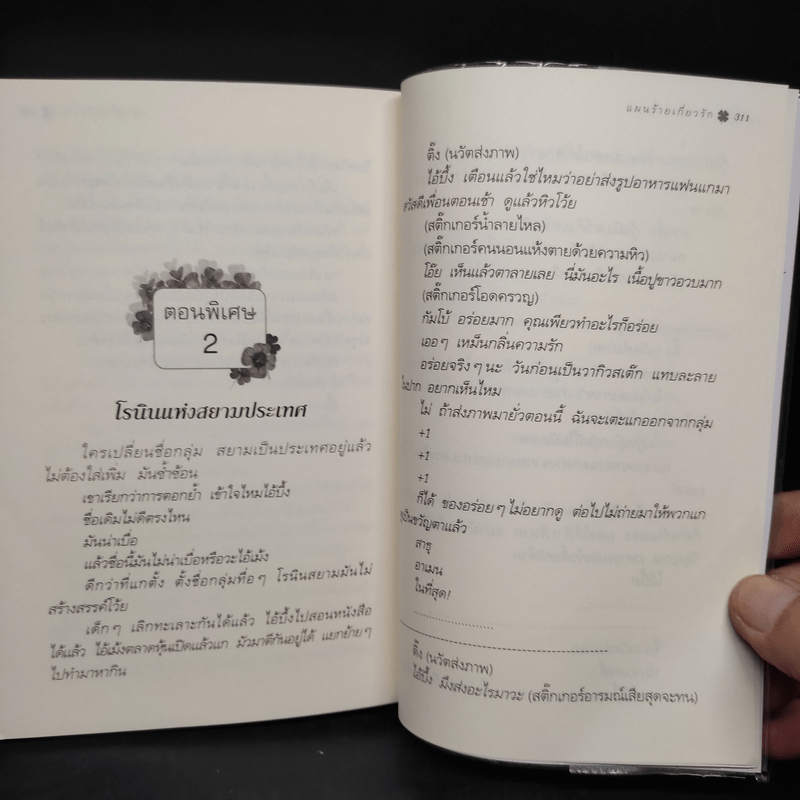 ตอนพิเศษ
2
โรนินแห่งสยามประเทศ
ใครเปลี่ยนชื่อกลุ่ม สยามเป็นประเทศอยู่แล้ว
ไม่ต้องใส่เพิ่ม มันซ้ำซ้อน
เขาเรียกว่าการตอกย้ำ เข้าใจไหมไอ้บึ้ง
ชื่อเดิมไม่ดีตรงไหน
มันน่าเบื่อ
แล้วชื่อนี้มันไม่น่าเบื่อหรือวะไอ้เม้ง
ดีกว่าที่แกตั้ง ตั้งชื่อกลุ่มทื่อๆ โรนินสยามมันไม่
สร้างสรรค์โว้ย
เด็กๆ เลิกทะเลาะกันได้แล้ว ไอ้บึ้งไปสอนหนังสือ
ได้แล้ว ไอ้เม้งตลาดหุ้นเปิดแล้วแก มัวมาตีกันอยู่ได้ แยกย้ายๆ
ไปทำมาหากิน
แผนร้ายเกี่ยวรัก 311
ติ๊ง (นวัตส่งภาพ)
ไอ้บึ้ง เตือนแล้วใช่ไหมว่าอย่าส่งรูปอาหารแฟนแกมา
สวัสดีเพื่อนตอนเช้า ดูแล้วหิวโว้ย
(สติ๊กเกอร์น้ำลายไหล)
(สติ๊กเกอร์คนนอนแห้งตายด้วยความหิว)
โอ๊ย เห็นแล้วตาลายเลย นี่มันอะไร เนื้อปูขาวอวบมาก
(สติ๊กเกอร์โอดครวญ)
กัมโบ้ อร่อยมาก คุณเพียวทำอะไรก็อร่อย
เออๆ เหม็นกลิ่นความรัก
อร่อยจริงๆ นะ วันก่อนเป็นวากิวสเต๊ก แทบละลาย
ในปาก อยากเห็นไหม
ไม่ ถ้าส่งภาพมายั่วตอนนี้ ฉันจะเตะแกออกจากกลุ่ม
+1
+1
+1
ก็ได้ ของอร่อยๆ ไม่อยากดู ต่อไปไม่ถ่ายมาให้พวกแก
เป็นขวัญตาแล้ว
สาธุ
อาเมน
ในที่สุด!
......................
ติ๊ง (นวัตส่งภาพ)
ไอ้บึ้ง มึงส่งอะไรมาวะ (สติ๊กเกอร์อารมณ์เสียสุดจะทน)